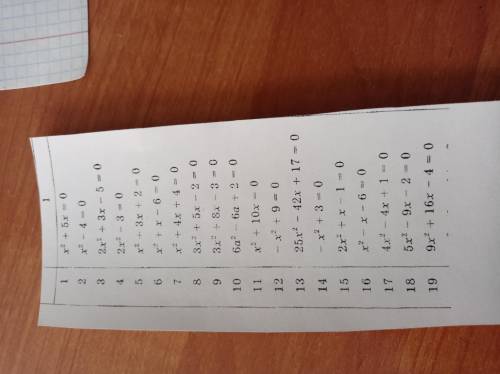 1
1 x² + 5x = 0
2 x² − 4 = 0
3 2x² + 3x − 5 = 0
4 2x² − 3 = 0
5 x² − 3x + 2 = 0
6 x² + x − 6 = 0
7 x² + 4x + 4 = 0
8 3x² + 5x − 2 = 0
9 3x² + 8x − 3 = 0
10 6a² − 6a + 2 = 0
11 x² + 10x = 0
12 − x² + 9 = 0
13 25x² − 42x + 17 = 0
14 − x² + 3 = 0
15 2x² + x − 1 = 0
16 x² − x − 6 = 0
17 4x² − 4x + 1 = 0
18 5x² − 9x − 2 = 0
19 9x² + 16x − 4 = 0